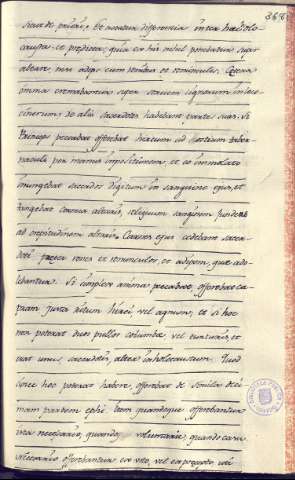 368
sicut de primis. Et notatur differencia inter haec holo
causta et predicta; quia ex his nihil ponebatur super
altare, nisi adipes cum renibus et renunculis. Cetera
omnia cremabantur super struem lignorum in loco
cinerum; de aliis sacerdotes habebant partes suas. Si
Princeps peccabat offerebat hircum ad hostium taber
naculi per manus impositionem et eo immolato
tingebat sacerdos digitum in sanguine ejus, et
tangebat cornua altaris, reliquum sanguinem fundens
ad crepitudinem altaris. Carnes ejus cedebant sacer
doti praeter renes et renunculos, et adipem, quae ado
lebantur. Si simplex anima peccabat, offerebat ca
pram juxta ritum hirci, vel agnam, et si hoc
non poterat duos pullos columbae vel turtures, et
erat unus sacerdotis, alter in holocaustum. Quod
si nec hoc poterat habere, offerebat de simila deci
mam partem ephi. Item quandoque offerebantur
ista necessario, quando voluntarie, quando casu
necessario offerebantur ex voto, vel ex peccato, vel